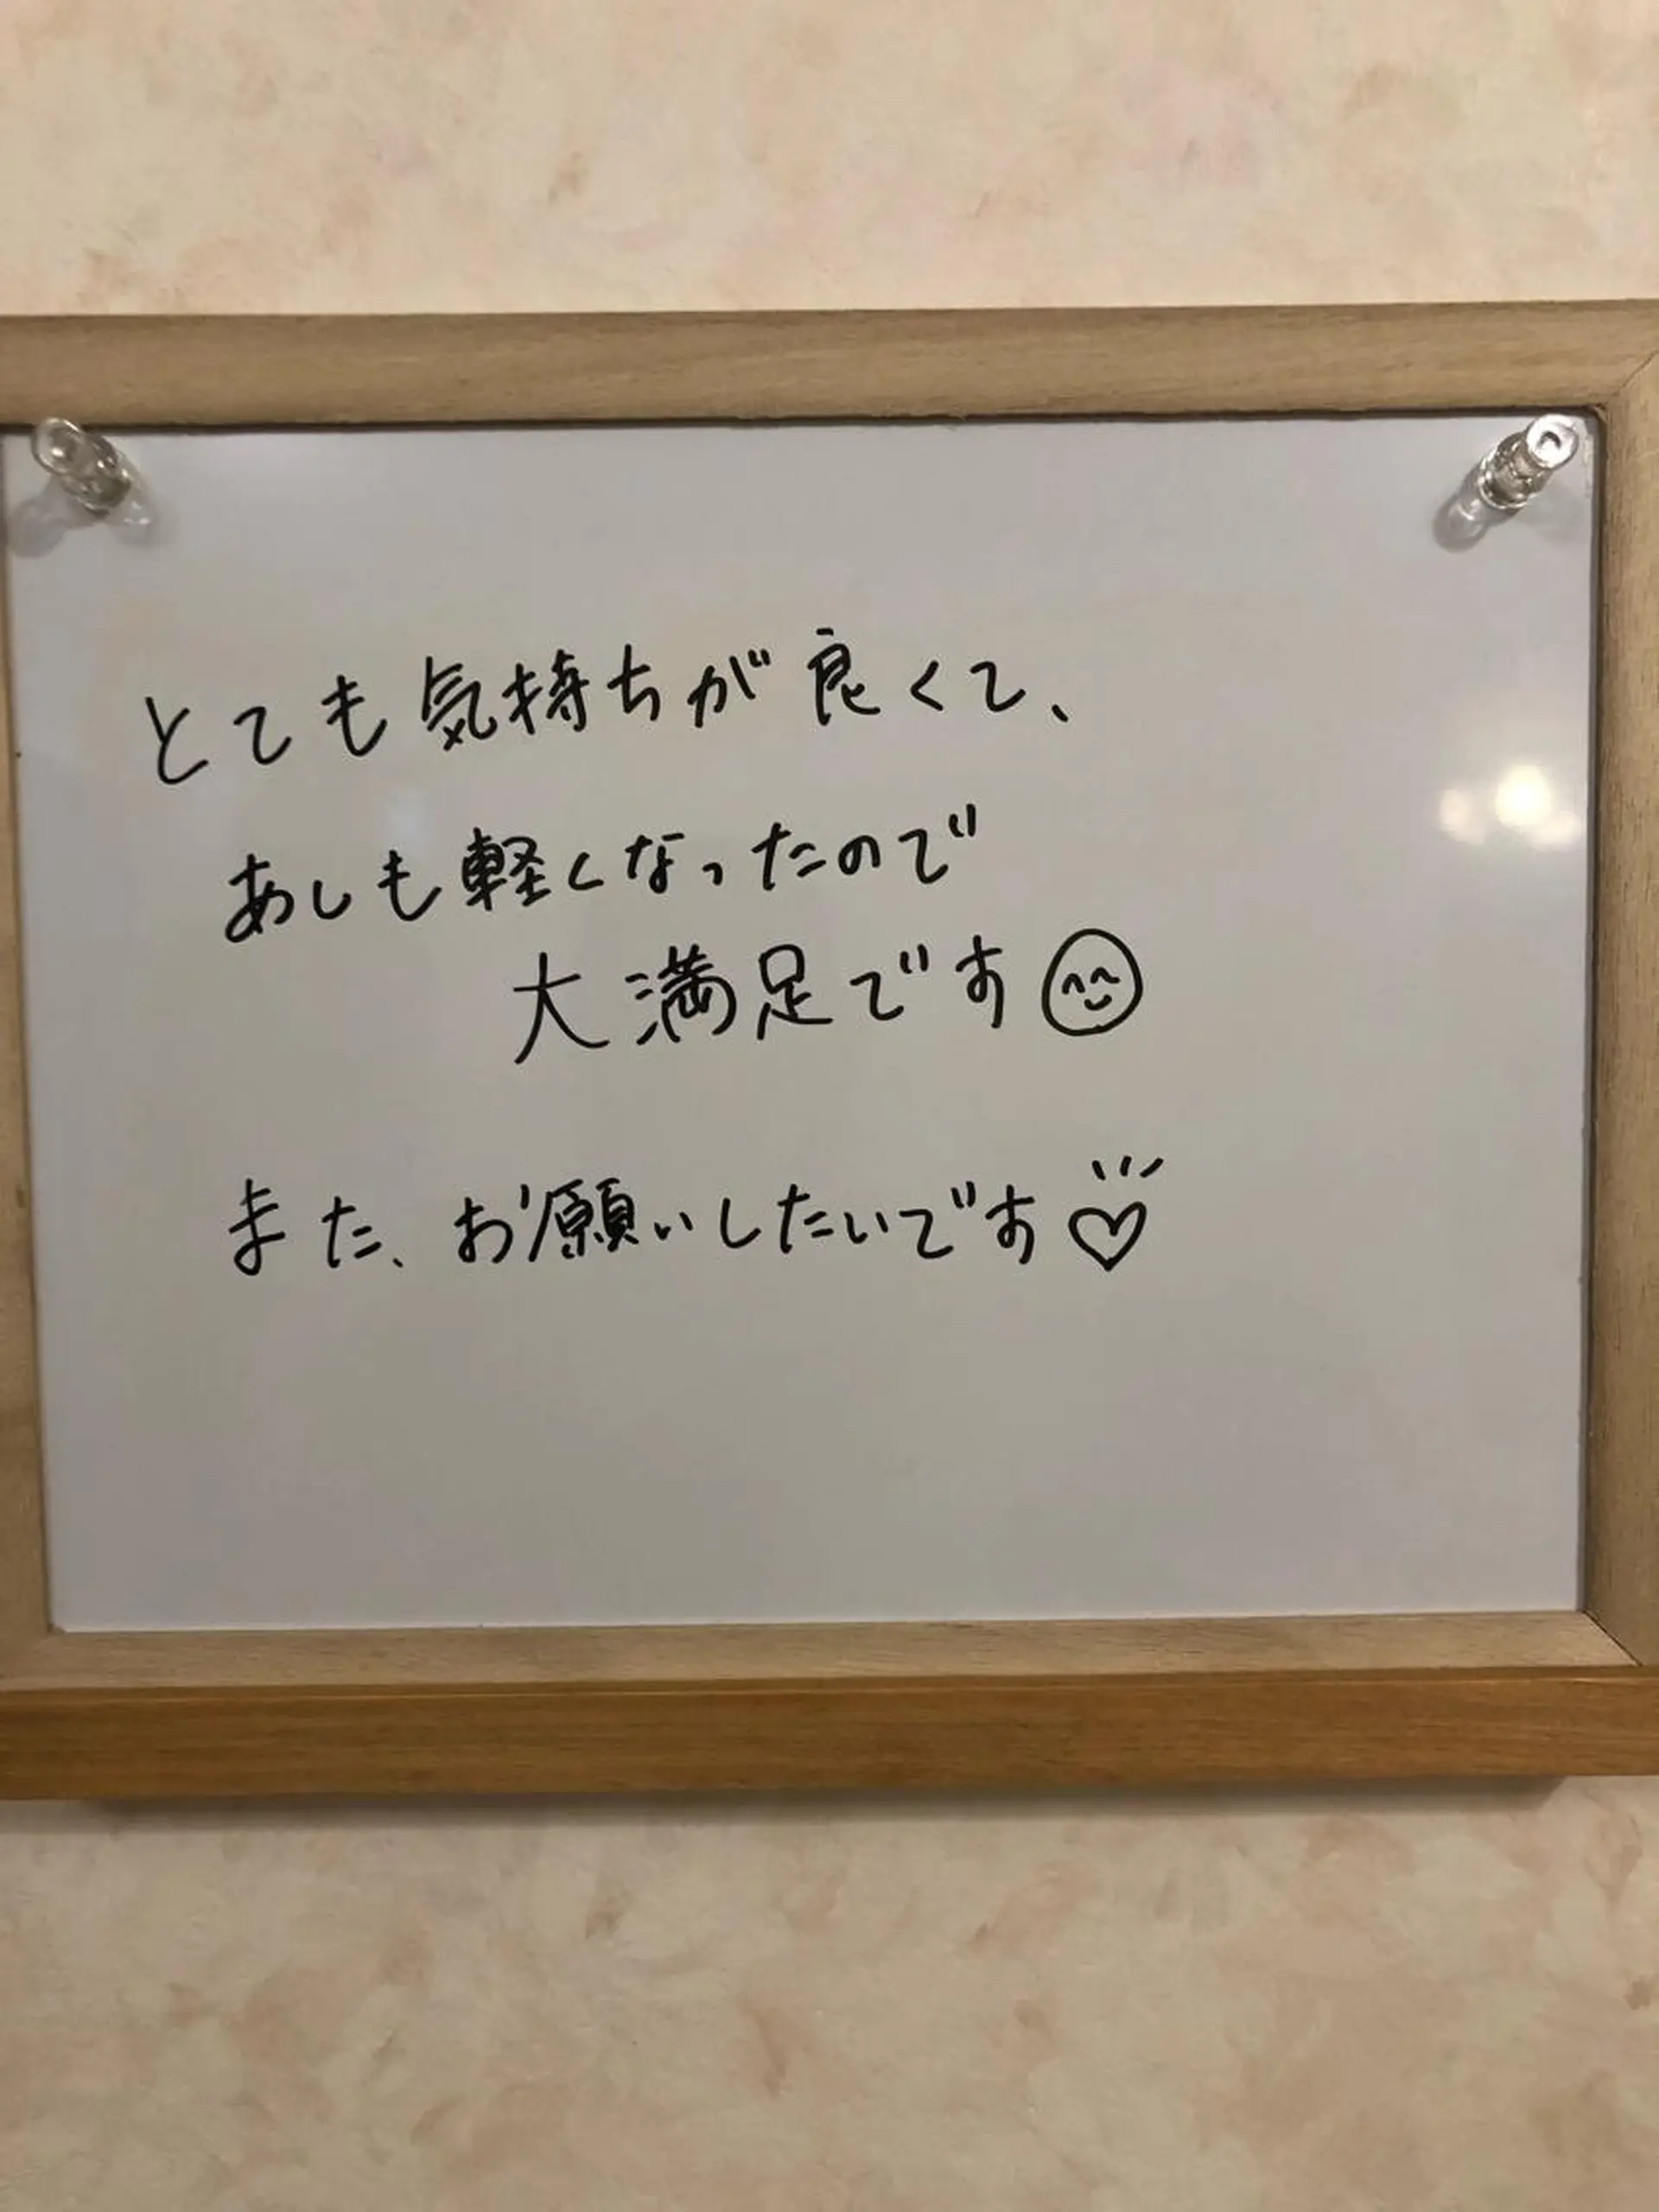 とても気持ちが良くて、
あしも軽くなったので
大満足です
また、お願いしたいです♡